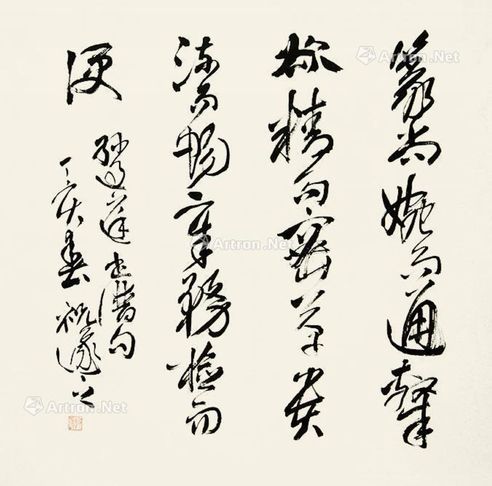 篆尚婉而通隸
欲精而密草貴
流而暢章務檢而
便
孫過庭書譜句
丁亥春祝遂之
Artron.Net
Artron.Net
Artron.Net
Artron.Net